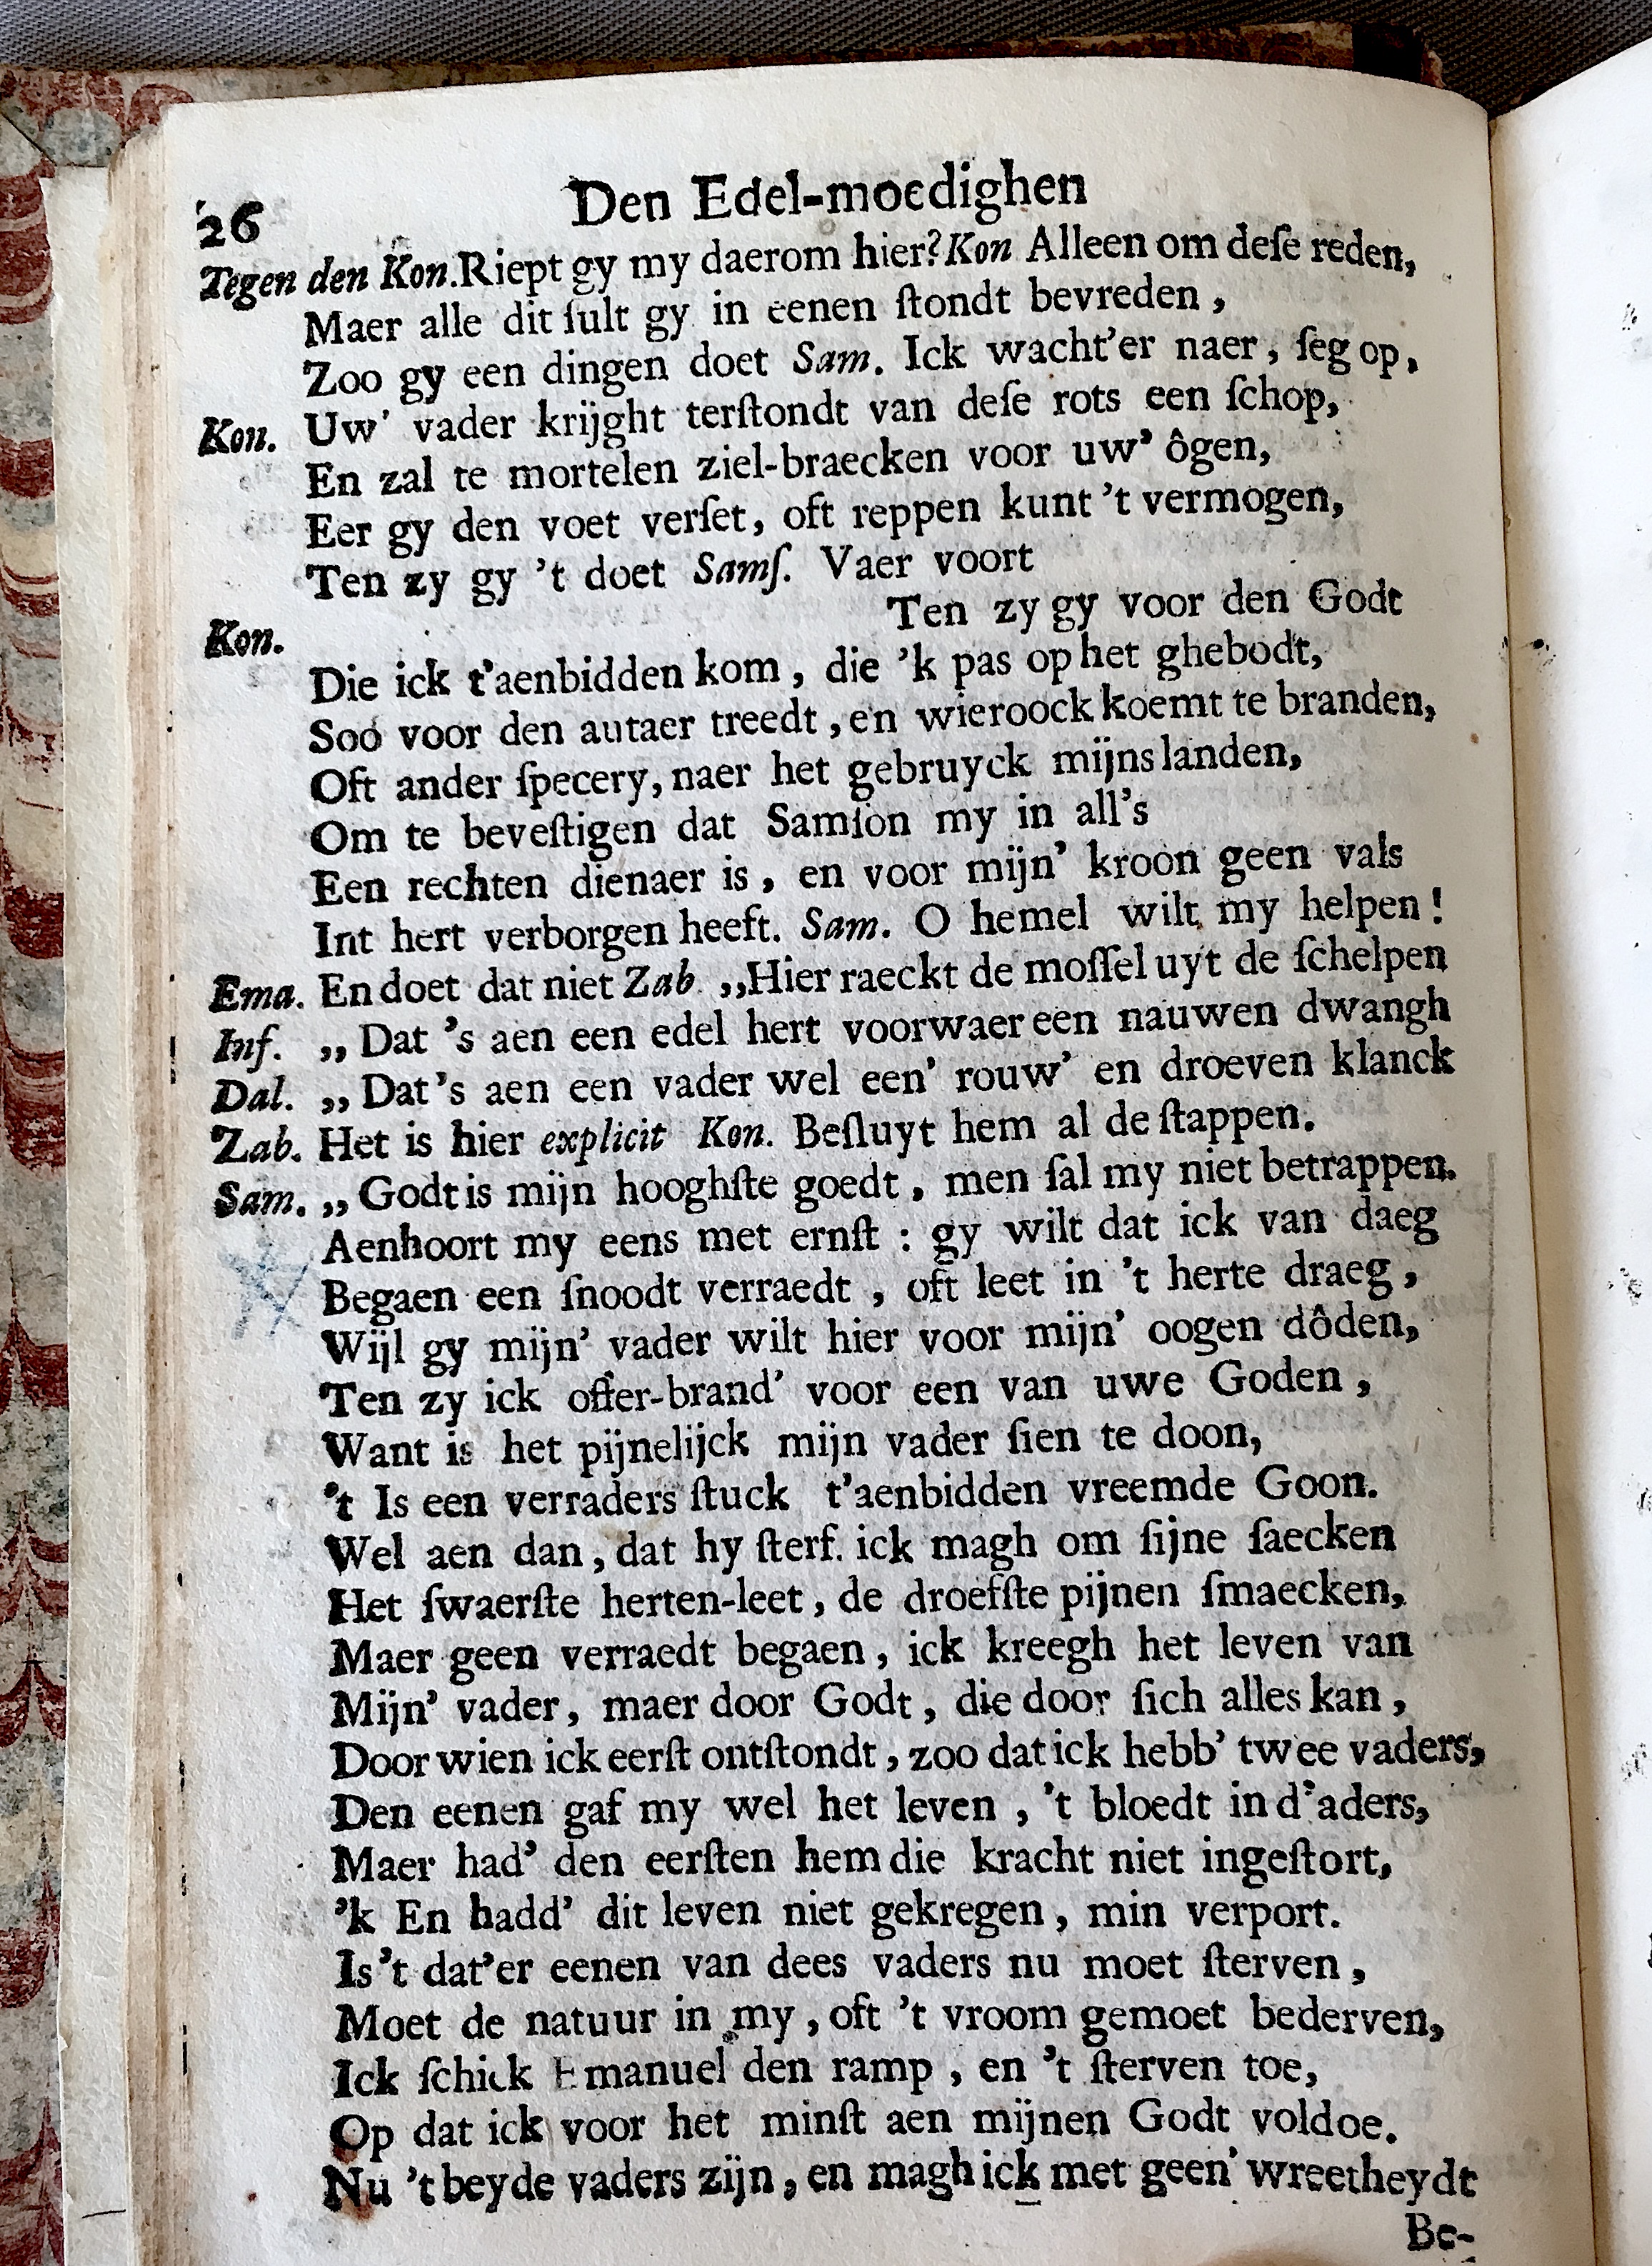 26 Den Edel-moedighen
Tegen den Kon. Riept gy my daerom hier? Kon Alleen om deſe reden,
Maer alle dit ſult gy in eenen ſtondt bevreden ,
Zoo gy een dingen doet Sam. Ick wacht'er naer , ſeg op,
Kon. Uw' vader krijght terſtondt van deſe rots een ſchop,
En zal te mortelen ziel-braecken voor uw' ôgen,
Eer gy den voet verſet, oft reppen kunt 't vermogen,
Ten zy gy 't doet Samſ. Vaer voort
Kon. Ten zy gy voor den Godt
Die ick t'aenbidden kom , die 'k pas op het ghebodt,
Soo voor den autaer treedt , en wieroock koemt te branden,
Oft ander ſpecery, naer het gebruyck mijns landen,
Om te beveſtigen dat Samſon my in all's
Een rechten dienaer is , en voor mijn' kroon geen vals
Int hert verborgen heeft. Sam. O hemel wilt my helpen !
Ema. En doet dat niet Zab. ,,Hier raeckt de moſſel uyt de ſchelpen
Inf. ,, Dat 's aen een edel hert voorwaer een nauwen dwangh
Dal. ,, Dat's aen een vader wel een' rouw' en droeven klanck
Zab. Het is hier explicit Kon. Beſluyt hem al de ſtappen.
Sam. ,, Godt is mijn hooghſte goedt , men ſal my niet betrappen.
Aenhoort my eens met ernſt : gy wilt dat ick van daeg
Begaen een ſnoodt verraedt , oft leet in 't herte draeg ,
Wijl gy mijn' vader wilt hier voor mijn' oogen dôden,
Ten zy ick offer-brand' voor een van uwe Goden ,
Want is het pijnelijck mijn vader ſien te doon,
't Is een verraders ſtuck t'aenbidden vreemde Goon.
Wel aen dan , dat hy ſterf. ick magh om ſijne ſaecken
Het ſwaerſte herten-leet , de droefſte pijnen ſmaecken,
Maer geen verraedt begaen , ick kreegh het leven van
Mijn' vader, maer door Godt , die door ſich alles kan ,
Door wien ick eerſt ontſtondt , zoo dat ick hebb' twee vaders,
Den eenen gaf my wel het leven , 't bloedt in d'aders,
Maer had' den eerſten hem die kracht niet ingeſtort,
'k En hadd' dit leven niet gekregen , min verport.
Is't dat'er eenen van dees vaders nu moet ſterven ,
Moet de natuur in my , oft 't vroom gemoet bederven,
Ick ſchick Emanuel den ramp , en 't ſterven toe,
Op dat ick voor het minſt aen mijnen Godt voldoe.
Nu 't beyde vaders zijn , en magh ick met geen' wreetheydt
Be-